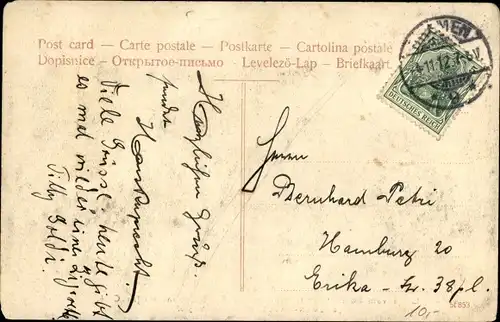 Post card – Carte postale – Postkarte – Cartolina postale
Dopisnice – Открытое-письмо – Levelező-Lap – Briefkaart
BREMEN
11.12.
DEUTSCHES REICH
Herrn
Bernhard Petri
Hamburg 20
Erika-Str. 38 pl.
Herzlichen Gruß
sendet
Viele Grüsse. heute gibt
es mal wieder einen
Tilly
St 853
10,-